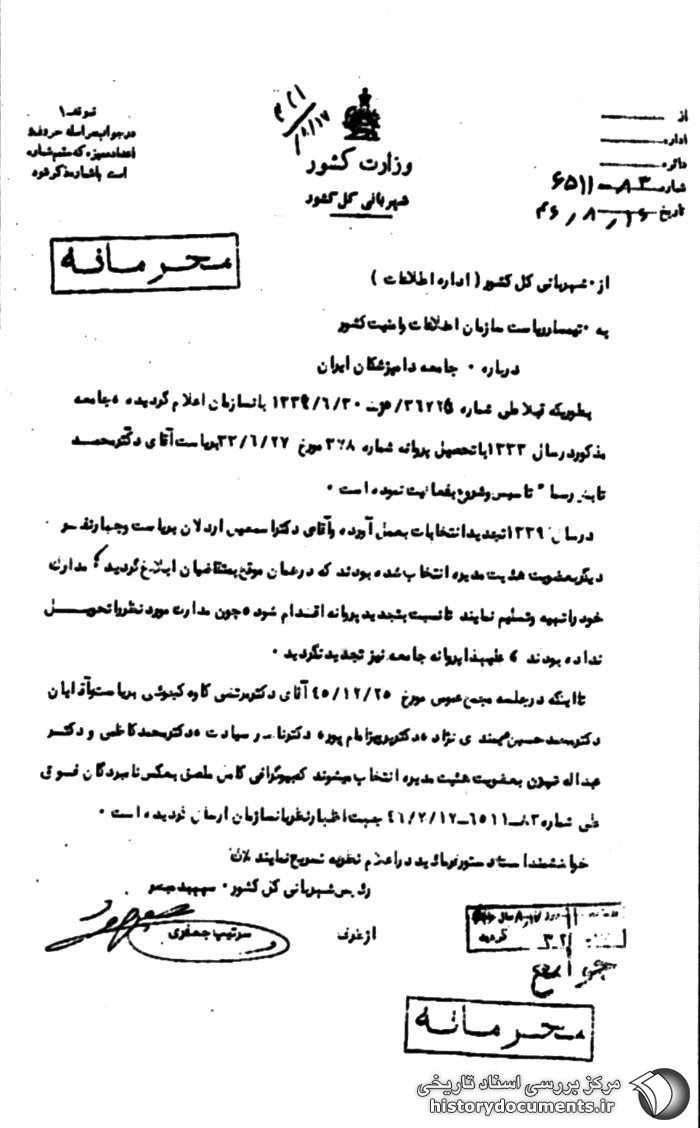 از
اداره
دائره
شماره ۸۳-۶۵۱۱
تاریخ ۴۶/۸/۱۶
۱۷/۸
وزارت کشور
شهربانی کل کشور
در جواب مراسله حروف و
اعداد ممیزه که متمم شماره
است باشماره ذکر شود
محرمانه
از : شهربانی کل کشور ( اداره اطلاعات )
به : تیمسار ریاست سازمان اطلاعات وامنیت کشور
درباره : جامعه دامپزشکان ایران
بطوریکه قبلا طی شماره بانسازمان اعلام گردیده ، جامعه
مذکور در سال ۱۳۳۳ با تحصیل پروانه شماره مورخ ۳۳/۶/۲۷ بریاست آقای دکتر محمد
رسما" تاسیس و شروع بفعالیت نموده است .
در سال ۱۳۳۹ تجدید انتخابات بعمل آورده و آقای دکتر اسمعیل اردلان بریاست و چهار نفر
دیگر بعضویت هیئت مدیره انتخاب شده بودند که در همان موقع بمتقاضیان ابلاغ گردید ، مدارک
خود را تهیه و تسلیم نمایند تا نسبت بتجدید پروانه اقدام شود ، چون مدارک مورد نظر را تحویل
نداده بودند ، علیهذا پروانه جامعه نیز تجدید نگردید .
تا اینکه در جلسه مجمع عمومی مورخ ۴۵/۱۲/۲۵ آقای دکتر مرتضی کاوه بریاست و آقایان
دکتر محمد حسین ، دکتر پرویز امام پور ، دکتر ناصر سیادت ، دکتر محمد کاظمی و دکتر
عبداله بعضویت هیئت مدیره انتخاب میشوند که بیوگرافی کامل ملصق بعکس نامبردگان فوق
طی شماره ۸۳-۶۵۱۱-۴۶/۲/۱۲ جهت اظهار نظر بانسازمان ارسال گردیده است .
خواهشمند است دستور فرمائید در اعلام نظریه تسریع نمایند
رئیس شهربانی کل کشور . سپهبد مبصر
از طرف
سرتیپ جعفری
گردید
محرمانه
مرکز بررسی اسناد تاریخی
historydocuments.ir